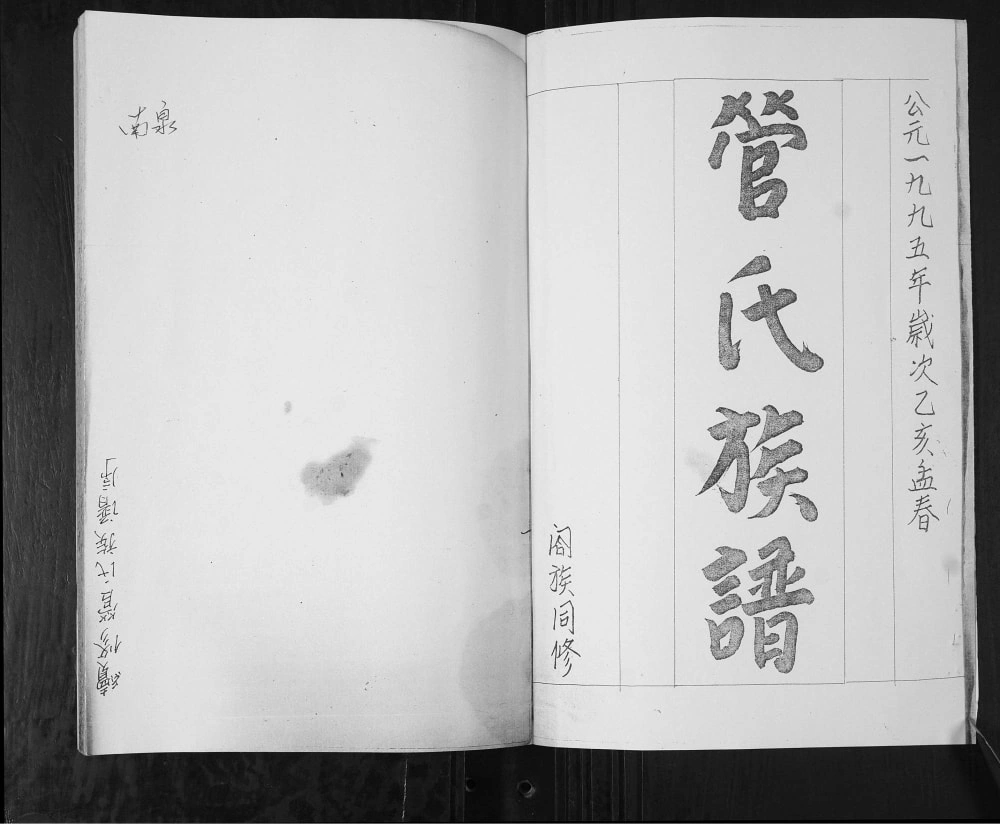 公元一九九五年歲次乙亥孟春
管氏族譜
阁族同修
南泉
續修管氏族譜序